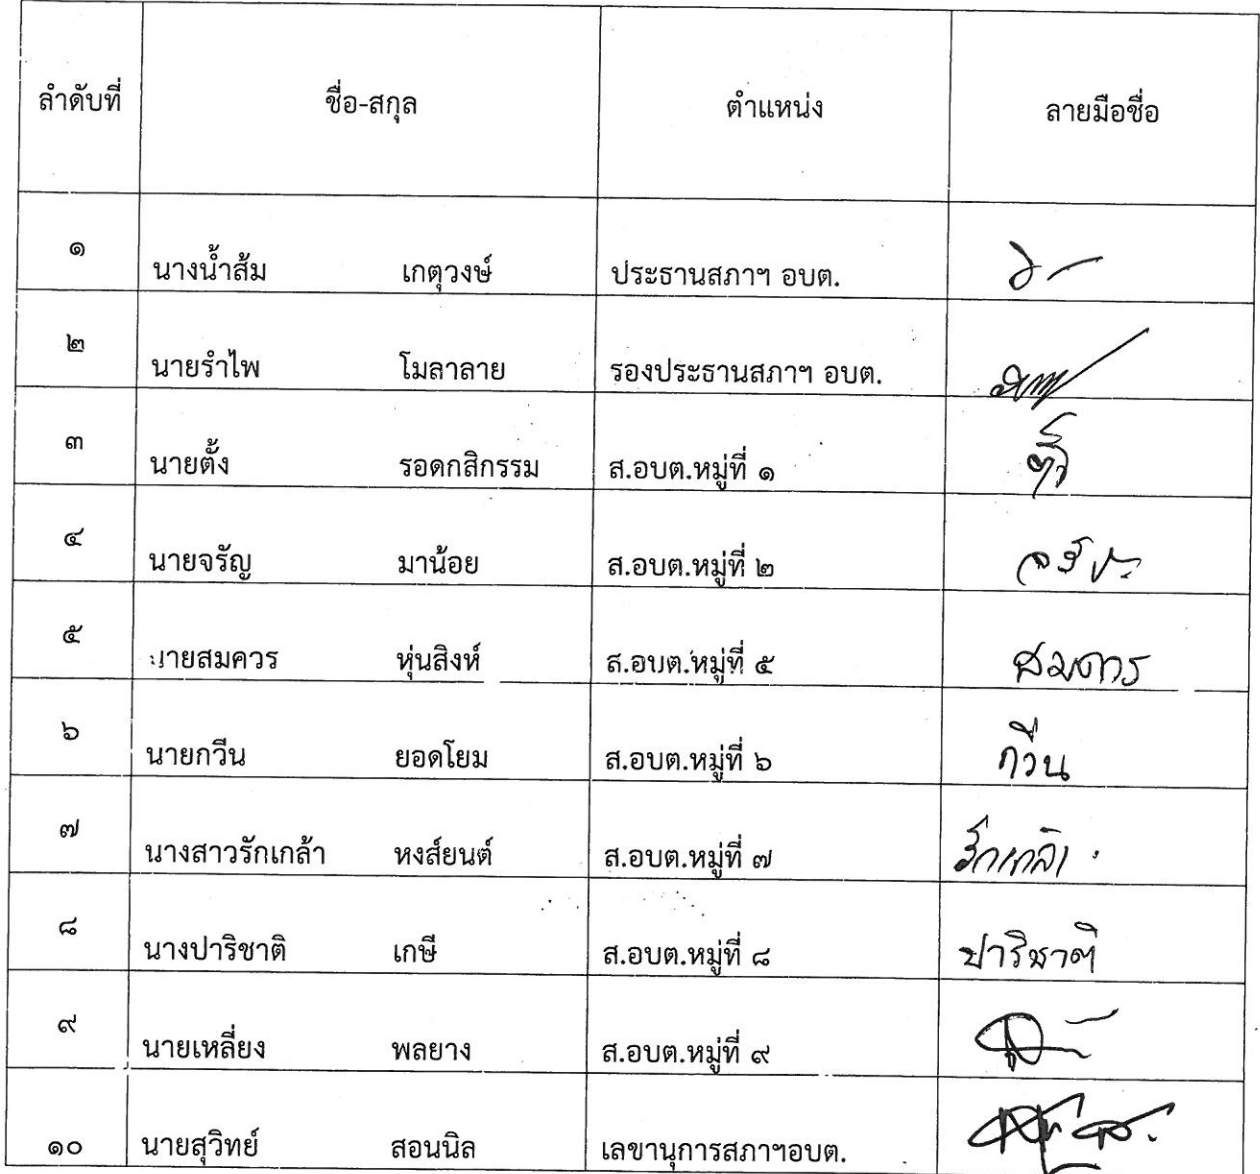 ลำดับที่ ชื่อ-สกุล ตำแหน่ง ลายมือชื่อ
๑ นางน้ำส้ม เกตุวงษ์ ประธานสภาฯ อบต.
๒ นายรำไพ โมลาลาย รองประธานสภาฯ อบต.
๓ นายตั้ง รอดกสิกรรม ส.อบต.หมู่ที่ ๑
๔ นายจรัญ มาน้อย ส.อบต.หมู่ที่ ๒
๕ นายสมควร หุ่นสิงห์ ส.อบต.หมู่ที่ ๕ สมควร
๖ นายกวีน ยอดโยม ส.อบต.หมู่ที่ ๖ กวีน
๗ นางสาวรักเกล้า หงส์ยนต์ ส.อบต.หมู่ที่ ๗ รักเกล้า
๘ นางปาริชาติ เกษี ส.อบต.หมู่ที่ ๘ ปาริชาติ
๙ นายเหลี่ยง พลยาง ส.อบต.หมู่ที่ ๙
๑๐ นายสุวิทย์ สอนนิล เลขานุการสภาฯอบต.